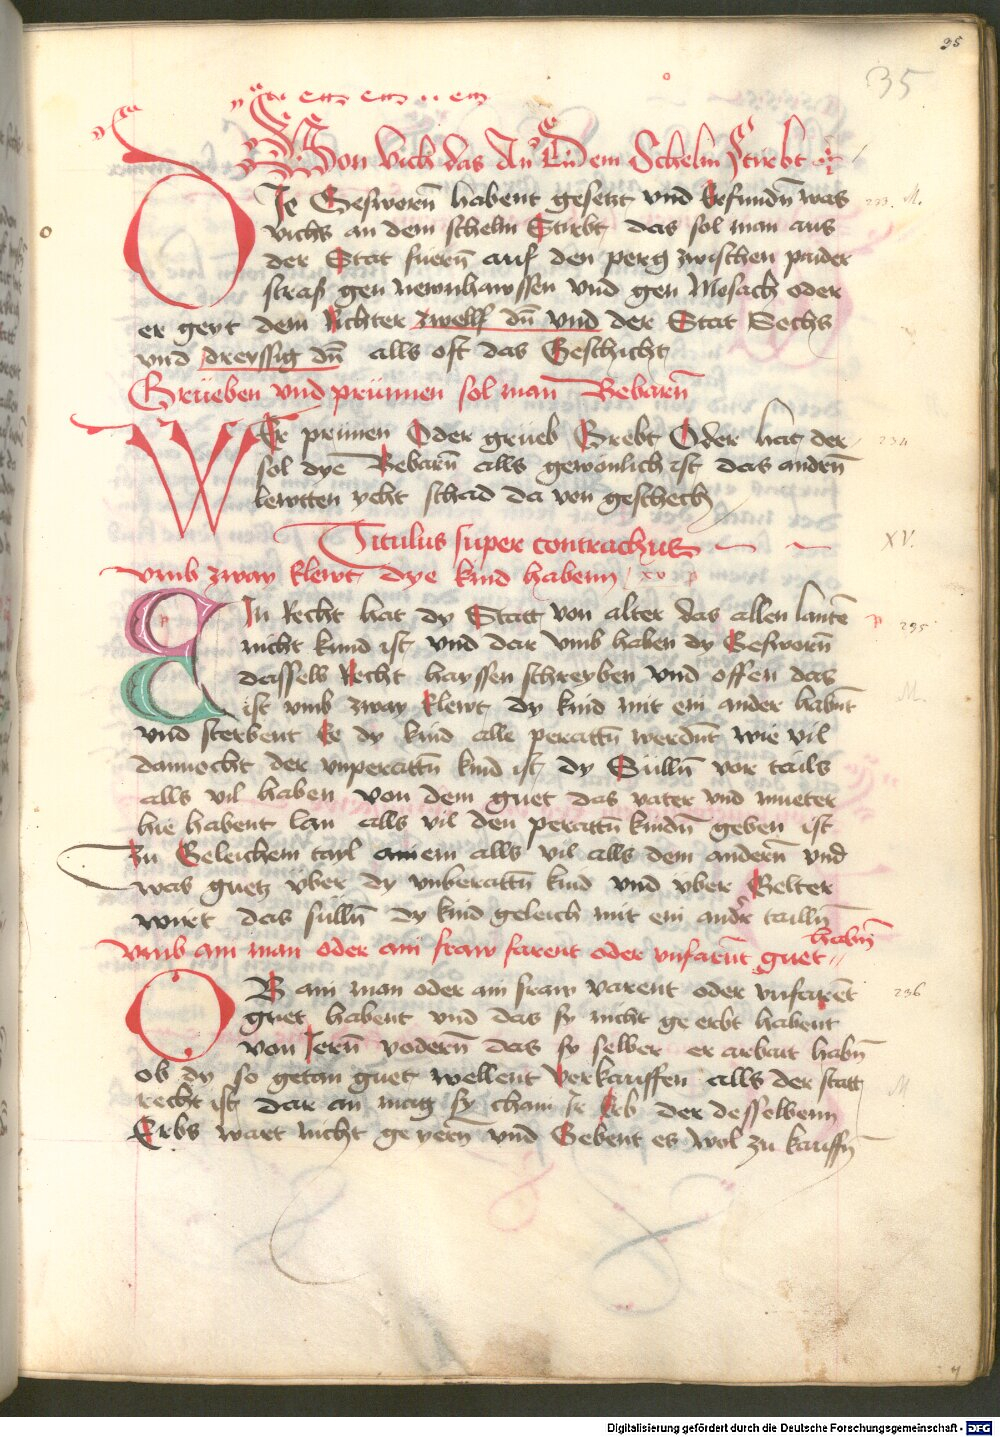 35
35
Von vich das An dem Schelm Stirbt
DIe Geswornn habent gesetzt vnd Erfundn was
vichs an dem schelm Stirbt das sol man aus
der Stat fuern auf den perg zwischen paider
strass gen newnhawssen vnd gen Mosach oder
er geyt dem Richter zwelf dn vnd der Stat Sechs
vnd dreyssig dn alls oft das Geschicht
Grüeben vnd prünnen sol man Bebarn
WEr prünen Oder grüeb Grebt Oder hat der
sol dye Bebarn alls gewonlich ist das andern
lewtten ycht schad da von geschech
Titulus super contractus
vmb zway klewt dye kind habenn xv
EIn Recht hat dy Statt von alter das allen lautn
nicht kund ist vnd dar vmb haben dy Gesworn
dasselb Recht hayssen schreyben vnd offen das
ist vmb zway klewt dy kind mit ein ander habnt
vnd sterbent Ee dy kind alle perattn werdnt wie vil
dannocht der vnperattn kind ist dy Süllnn vor tails
alls vil haben von dem guet das vater vnd mueter
hie habent lan alls vil den perattn kindn geben ist
Zu Geleichem tayl ainem alls vil alls dem andern vnd
was guetz vber dy vnberattn kind vnd vber Gelter
wirt das sülln dy kind geleich mit ein ander taillnn
vmb ain man oder ain fraw farent oder vnfarnt guet habn
OB ain man oder ain fraw varent oder vnfarent
guet habent vnd das sy nicht ge erbt habent
von Iern vodern das sy selber er arbait habn
ob dy so getan guet wellent verkauffen alls der statt
recht ist dar an mag sy chain Ir Erb der desselbenn
Erbs wart nicht ge yern vnd Gebent es wol zu kauffn
233.
234
XV.
235
236
Digitalisierung gefördert durch die Deutsche Forschungsgemeinschaft - DFG